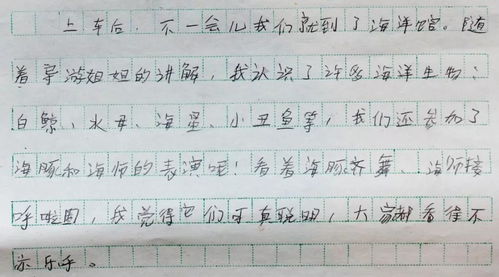 上车后，不一会儿我们就到了海洋馆。随
着导游姐姐的讲解，我认识了许多海洋生物：
白鲸、水母、海星、小丑鱼等，我们还参加了
海豚和海师的表演呢！看着海豚齐舞、海师接
呼啦圈，我觉得它们可真聪明，大家都看得不
亦乐乎。